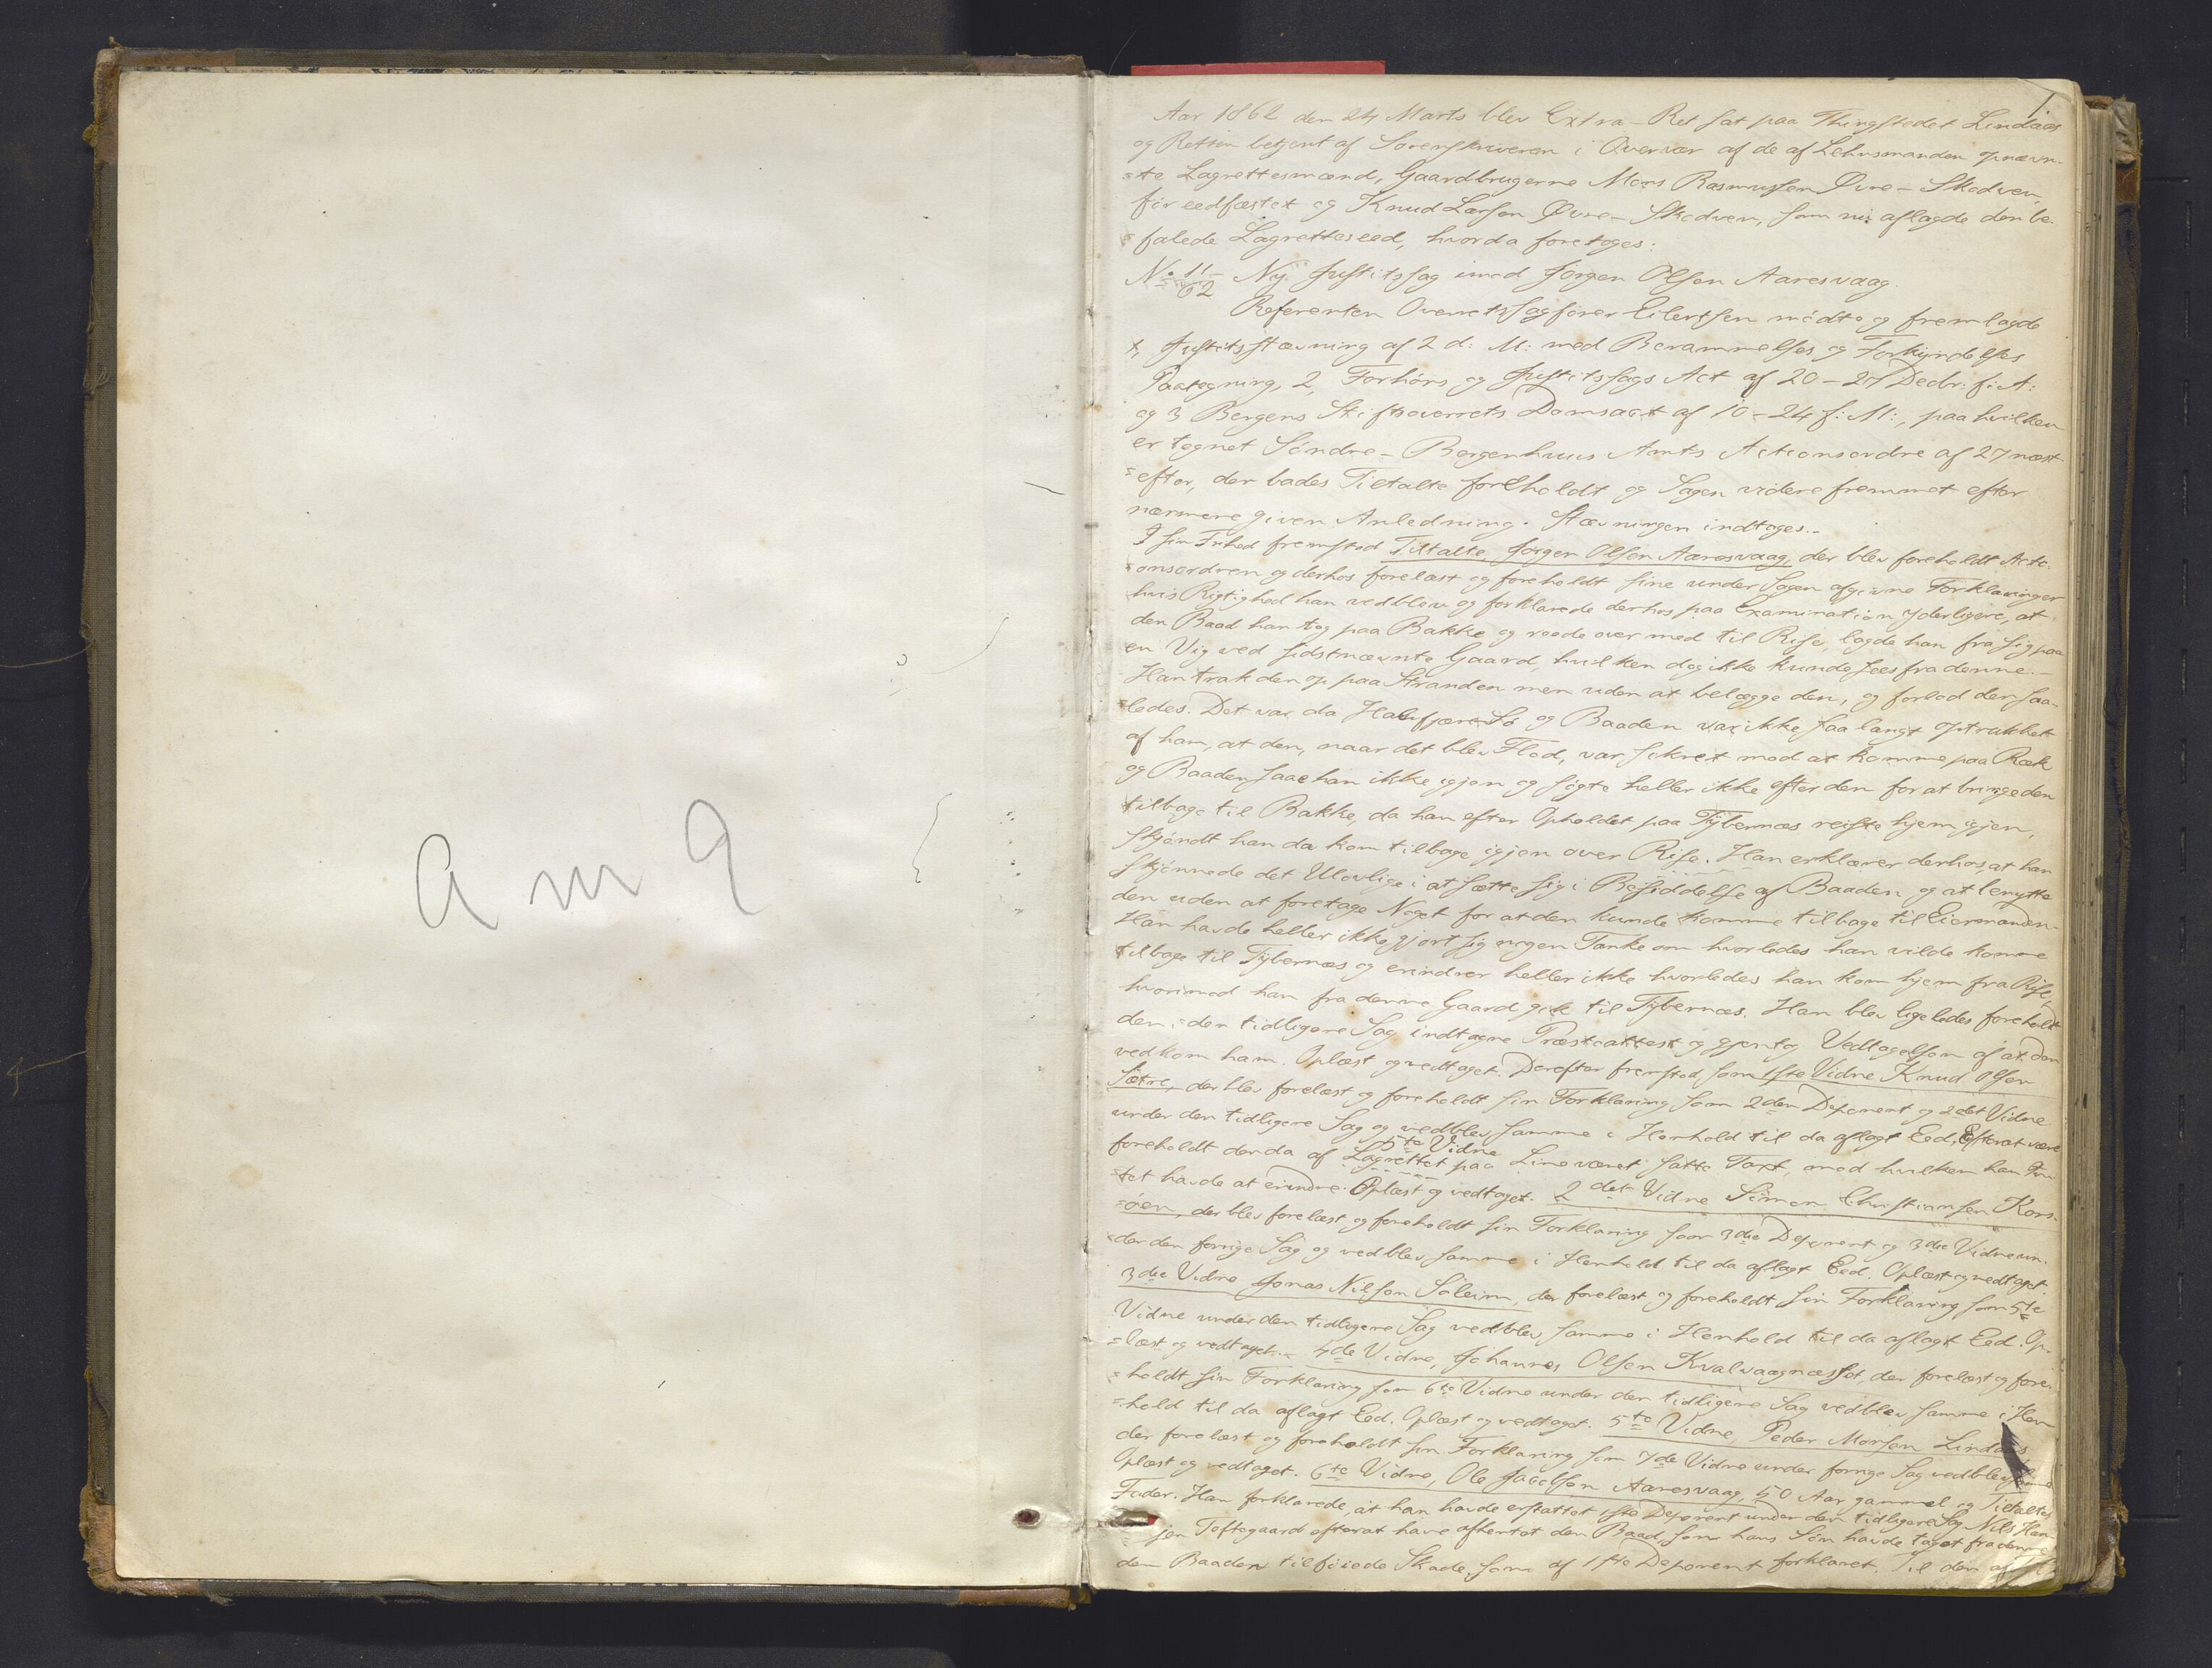 a m 9
1
Aar 1862 den 24 Marts blev Extra-Ret sat paa Thingstedet Lindaas
og Retten betjent af Sorenskriveren i Overvær af de af Lehnsmanden opnævn-
=te Lagrettesmænd, Gaardbrugerne Mons Rasmussen Øvre-Skodven,
før eedfæstet og Knud Larsen Øvre-Skodven, som nu aflagde den be-
=falede Lagretteseed, hvorda foretoges:
No 11/62 Ny Justitssag imod Jørgen Olsen Aaresvaag.
Referenten Overretssagfører Eilertsen mødte og fremlagde
1, Justitsstævning af 2 d: M: med Berammelses og Forkyndelses
Paategning, 2, Forhørs og Justitssags Act af 20-27 Decbr: f: A:
og 3 Bergens Stiftsoverrets Domsact af 10-24 f: M:, paa hvilken
er tegnet Søndre-Bergenhuus Amts Actionsordre af 27 næst
=efter, der bades Tiltalte foreholdt og Sagen videre fremmet efter
nærmere given Anledning. Stævningen indtages.-
I sin Frihed fremstod Tiltalte Jørgen Olsen Aaresvaag, der blev foreholdt Acti-
=onsordren og derhos forelæst og foreholdt sine under Sagen afgivne Forklaringer
hvis Rigtighed han vedblev og forklarede derhos paa Examination yderligere, at
den Baad han tog paa Bakke og roede over med til Rise, lagde han fra sig paa
en Vig ved sidstnævnte Gaard, hvilken dog ikke kunde sees fra denne.-
Han trak den op paa Stranden men uden at belægge den, og forlod den saa-
=ledes. Det var da Halvfjære Sø og Baaden var ikke saa langt optrukket
af ham, at den, naar det blev Flod, var sikret mod at komme paa Ræk
og Baaden saae han ikke igjen og søgte heller ikke efter den for at bringe den
tilbage til Bakke, da han efter Opholdet paa Fybernæs reiste hjem igjen,
skjøndt han da kom tilbage igjen over Rise. Han erklærer derhos, at han
skjønnede det Ulovlige i at sætte sig i Besiddelse af Baaden og at benytte
den uden at foretage Noget for at den kunde komme tilbage til Eiermanden.
Han havde heller ikke gjort sig nogen Tanke om hvorledes han vilde komme
tilbage til Fybernæs og erindrer heller ikke hvorledes han kom hjem fra Rise,
hvorimod han fra denne Gaard gik til Fybernæs. Han blev ligeledes foreholdt
den i den tidligere Sag indtagne Præsteattest og gjentog Vedtagelsen af at den
vedkom ham. Oplæst og vedtaget. Derefter fremstod som 1ste Vidne Knud Olsen
Sætre, der blev forelæst og foreholdt sin Forklaring som 2den Deponent og 2det Vidne
under den tidligere Sag og vedblev samme i Henhold til da aflagt Eed, Efterat være
foreholdt den da af Lagrettet 5te Vidne paa Lineværet satte Taxt, mod hvilken han In-
tet havde at erindre. Oplæst og vedtaget. 2det Vidne Simon Christiansen Kors-
=øen, der blev forelæst og foreholdt sin Forklaring som 3die Deponent og 3die Vidne un-
=der den forrige Sag og vedblev samme i Henhold til da aflagt Eed. Oplæst og vedtaget.
3die Vidne Jonas Nilsen Soleim, der forelæst og foreholdt sin Forklaring som 5te
Vidne under den tidligere Sag vedblev samme i Henhold til da aflagt Eed. Op-
=læst og vedtaget.- 4de Vidne, Johannes Olsen Kvalvaagnæsset, der forelæst og fore-
=holdt sin Forklaring som 6te Vidne under den tidligere Sag vedblev samme i Hen-
=hold til da aflagt Eed. Oplæst og vedtaget. 5te Vidne, Peder Monsen Lindaas
der forelæst og foreholdt sin Forklaring som 7de Vidne under forrige Sag vedblev samme
Oplæst og vedtaget. 6te Vidne, Ole Jacobsen Aaresvaag, 50 Aar gammel og Tiltaltes
Fader. Han forklarede, at han havde erstattet 1ste Deponent under den tidligere Sag Nils Han-
jen Toftegaard efterat have afhentet den Baad, som hans Søn havde taget fra denne
den Baaden tilføiede Skade, som af 1ste Deponent forklaret. Til den af